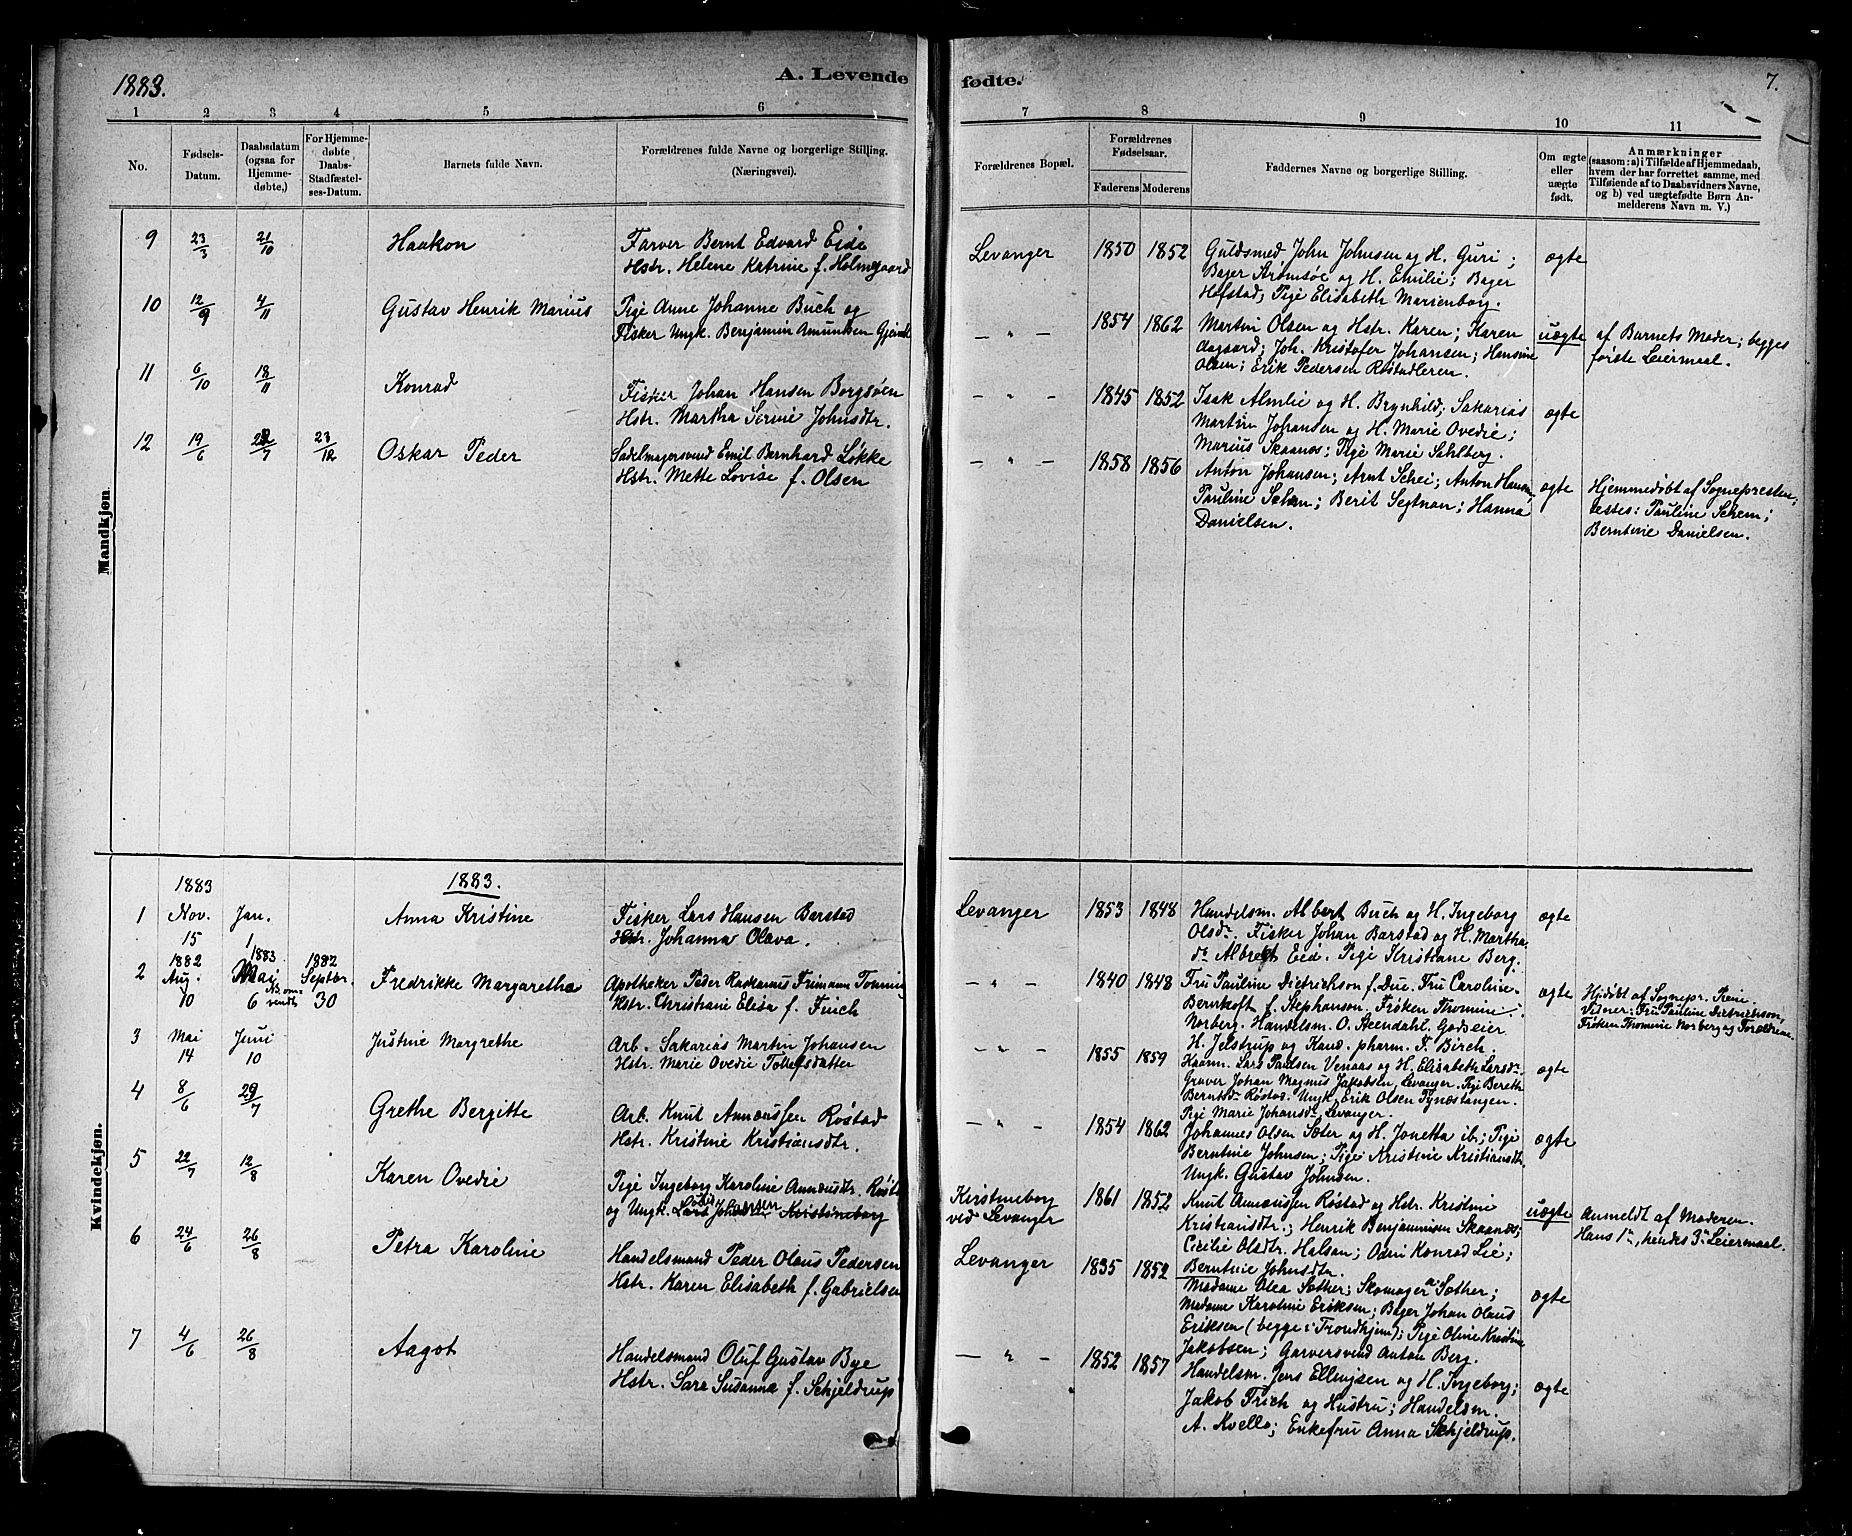 1883.
A. Levende fødte.
7.
1 2 3 4 5 6 7 8 9 10 11
No.
Fødsels-
Datum.
Daabsdatum
(ogsaa for
Hjemme-
døbte,)
For Hjemme-
døbte
Daabs-
Stadfæstel-
ses-Datum.
Barnets fulde Navn.
Forældrenes fulde Navne og borgerlige Stilling.
(Næringsvei).
Forældrenes Bopæl.
Forældrenes
Fødselsaar.
Faderens Moderens
Faddernes Navne og borgerlige Stilling.
Om ægte
eller
uægte
født.
Anmærkninger
(saasom: a) i Tilfælde af Hjemmedaab,
hvem der har forrettet samme, med
Tilføiende af to Daabsvidners Navne,
og b) ved uægtefødte Børn An-
melderens Navn m. V.)
Mandkjøn
9 23/3 21/10 Haakon
Farver Bernt Edvard Eide
Hstr. Helene Katrine f. Holmgaard
Levanger 1850 1852
Guldsmed John Johnsen og H. Guri;
Bager Strømsøe og H. Emilie; Bager
Hofstad; Pige Elisabeth Marienborg.
ægte
10 12/9 4/11 Gustav Henrik Marius
Pige Anne Johanne Buch og
Fisker Ungk. Benjamin Amundsen
— " — 1854 1862
Martin Olsen og Hstr. Karen; Karen
Aagaard; Joh. Kristofer Johansen; Hansine
Olsen; Erik Pedersen Røstadleren.
uægte
af Barnets Moder; begges
første Leiermaal.
11 6/10 18/11 Konrad
Fisker Johan Hansen Borgsøen
Hstr. Martha Johnsdtr.
— " — 1845 1852
Isak Almlie og H. Brynhild; Sakarias
Martin Johansen og H. Marie Ovedie;
Marius Skaanes; Pige Marie Sahlberg.
ægte
12 19/6 /7 23/12 Oskar Peder
Sadelmagersvend Emil Bernhard Løkke
Hstr. Mette Lovise f. Olsen
— " — 1858 1856
Anton Johansen; Arnt Schei; Anton Hansen;
Pauline Schem; Berit Segtnan; Hanna
Danielsen.
ægte
Hjemmedøbt af Sognepresten;
testes: Pauline Schem;
Berntine Danielsen.
Kvindekjøn.
1883
1883.
1 Nov. 15 Jan. 1 Anna Kristine
Fisker Lars Hansen Barstad
Hstr. Johanna Olava.
Levanger 1853 1848
Handelsm. Albert Buch og H. Ingeborg
Olsdr. Fisker Johan Barstad og H. Martha
dr. Albregt Eid. Pige Kristiane Berg.
ægte
2 1882 Aug. 10 1883 Mai 6 1882 Septbr. 30 Fredrikke Margaretha
Apotheker Peder Frimann
Hstr. Christiane Elisa f. Finch
— " — 1840 1848
Fru Pauline Dietrichson f. Due. Fru Caroline
Bernhoft f. Stephanson. Frøken Thomine
Norberg. Handelsm. O. Aeendahl. Godseier
H. Jelstrup og Kand. pharm. F. Birch.
ægte
Hjdøbt af Sognepr.
Vidner: Fru Pauline Dietrichson,
Frøken Thomine Norberg og Forældrene.
3 Mai 14 Juni 10 Justine Margrethe
Arb. Sakarias Martin Johansen
Hstr. Marie Ovedie Tollefsdatter
— " — 1855 1859
Kaarm. Lars Paulsen Venaas og H. Elisabeth Larsdr.
Graver Johan Magnus Jakobsen, Levanger. Pige Bereth
Berntsdr. Røstad. Ungk. Erik Olsen Tynæstangen.
Pige Marie Johansdr. Levanger.
ægte
4 8/6 29/7 Grethe Bergitte
Arb. Knut Røstad
Hstr. Kristine Kristiansdtr.
— " — 1854 1862
Johannes Olsen Sæter og H. Jonetta ib; Pige
Berntine Johnsen; Pige Kristine Kristiansdtr.
Ungk. Gustav Johnsen.
ægte
5 22/7 12/8 Karen Ovedie
Pige Ingeborg Karoline
og Ungk. Kristineborg
Kirstineborg
ved Levanger
1861 1852
Knut Røstad og Hstr. Kristine
Kristiansdtr.; Henrik Benjaminsen Skaanes;
Cicilie Olsdtr. Halsan; Odin Konrad Lie;
Berntine Johnsdtr.
uægte
Anmeldt af Moderen.
Hans 1ste, hendes 3die Leiermaal.
6 24/6 26/8 Petra Karoline
Handelsmand Peder Olaus Pedersen
Hstr. Karen Elisabeth f. Gabrielsen
Levanger 1835 1852
Madame Olea Sæther; Skomager Sæther;
Madame Karoline Eriksen; Bager Johan Olaus
Eriksen (begge i Trondhjem); Pige Oline Kristine
Jakobsen; Garversvend Anton Berg.
ægte
7 4/6 26/8 Aagot
Handelsmand Oluf Gustav Bye
Hstr. Sara Susanna f. Schjeldrup
— " — 1852 1857
Handelsm. Jens Ellingsen og H. Ingeborg;
Jakob Frich og Hustru; Handelsm.
A. Kvello; Enkefru Anna Schjeldrup.
ægte